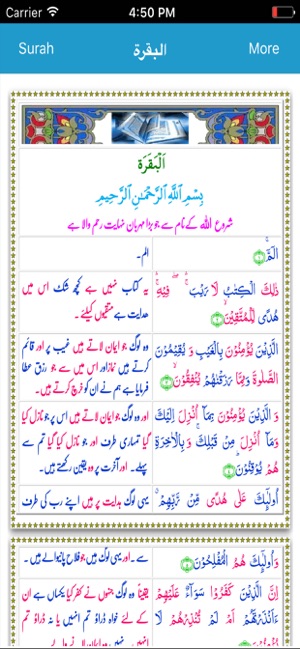 Carrier 4:50 PM
Surah البقرة More
اَلْبَقَرَة
بِسْمِ اللّٰهِ الرَّحْمٰنِ الرَّحِيْمِ
شروع الله کے نام سے جو بڑا مہربان نہایت رحم والا ہے
الٓمّٓ ۚ ۱
الم۔
ذٰلِكَ الْكِتٰبُ لَا رَيْبَ ۛۖ فِيْهِ ۛۚ
هُدًى لِّلْمُتَّقِيْنَ ۙ ۲
یہ کتاب نہیں ہے کچھ شک اس میں
ہدایت ہے متقیوں کیلئے۔
الَّذِيْنَ يُؤْمِنُوْنَ بِالْغَيْبِ وَ يُقِيْمُوْنَ
الصَّلٰوةَ وَمِمَّا رَزَقْنٰهُمْ يُنْفِقُوْنَ ۙ ۳
وہ لوگ جو ایمان لاتے ہیں غیب پر اور قائم
کرتے ہیں نماز اور اس میں سے جو رزق عطا
فرمایا ہے ہم نے ان کو خرچ کرتے ہیں۔
وَ الَّذِيْنَ يُؤْمِنُوْنَ بِمَآ اُنْزِلَ اِلَيْكَ
وَمَآ اُنْزِلَ مِنْ قَبْلِكَ ۚ وَبِالْاٰخِرَةِ
هُمْ يُوْقِنُوْنَ ؕ ۴
اور وہ لوگ جو ایمان لاتے ہیں اس پر جو نازل کیا
گیا تمہاری طرف اور جو نازل کیا گیا تم سے
پہلے۔ اور آخرت پر وہ یقین رکھتے ہیں۔
اُولٰٓئِكَ عَلٰى هُدًى مِّنْ رَّبِّهِمْ ۗ
یہی لوگ ہدایت پر ہیں اپنے رب کی طرف
وَاُولٰٓئِكَ هُمُ الْمُفْلِحُوْنَ ۵
سے۔ اور یہی لوگ ہیں جو فلاح پانیوالے ہیں۔
اِنَّ الَّذِيْنَ كَفَرُوْا سَوَآءٌ عَلَيْهِمْ
ءَاَنْذَرْتَهُمْ اَمْ لَمْ تُنْذِرْهُمْ لَا
یقیناً وہ لوگ جنہوں نے کفر کیا یکساں ہے ان
کے لئے خواہ ڈراؤ تم انہیں یا نہ ڈراؤ تم